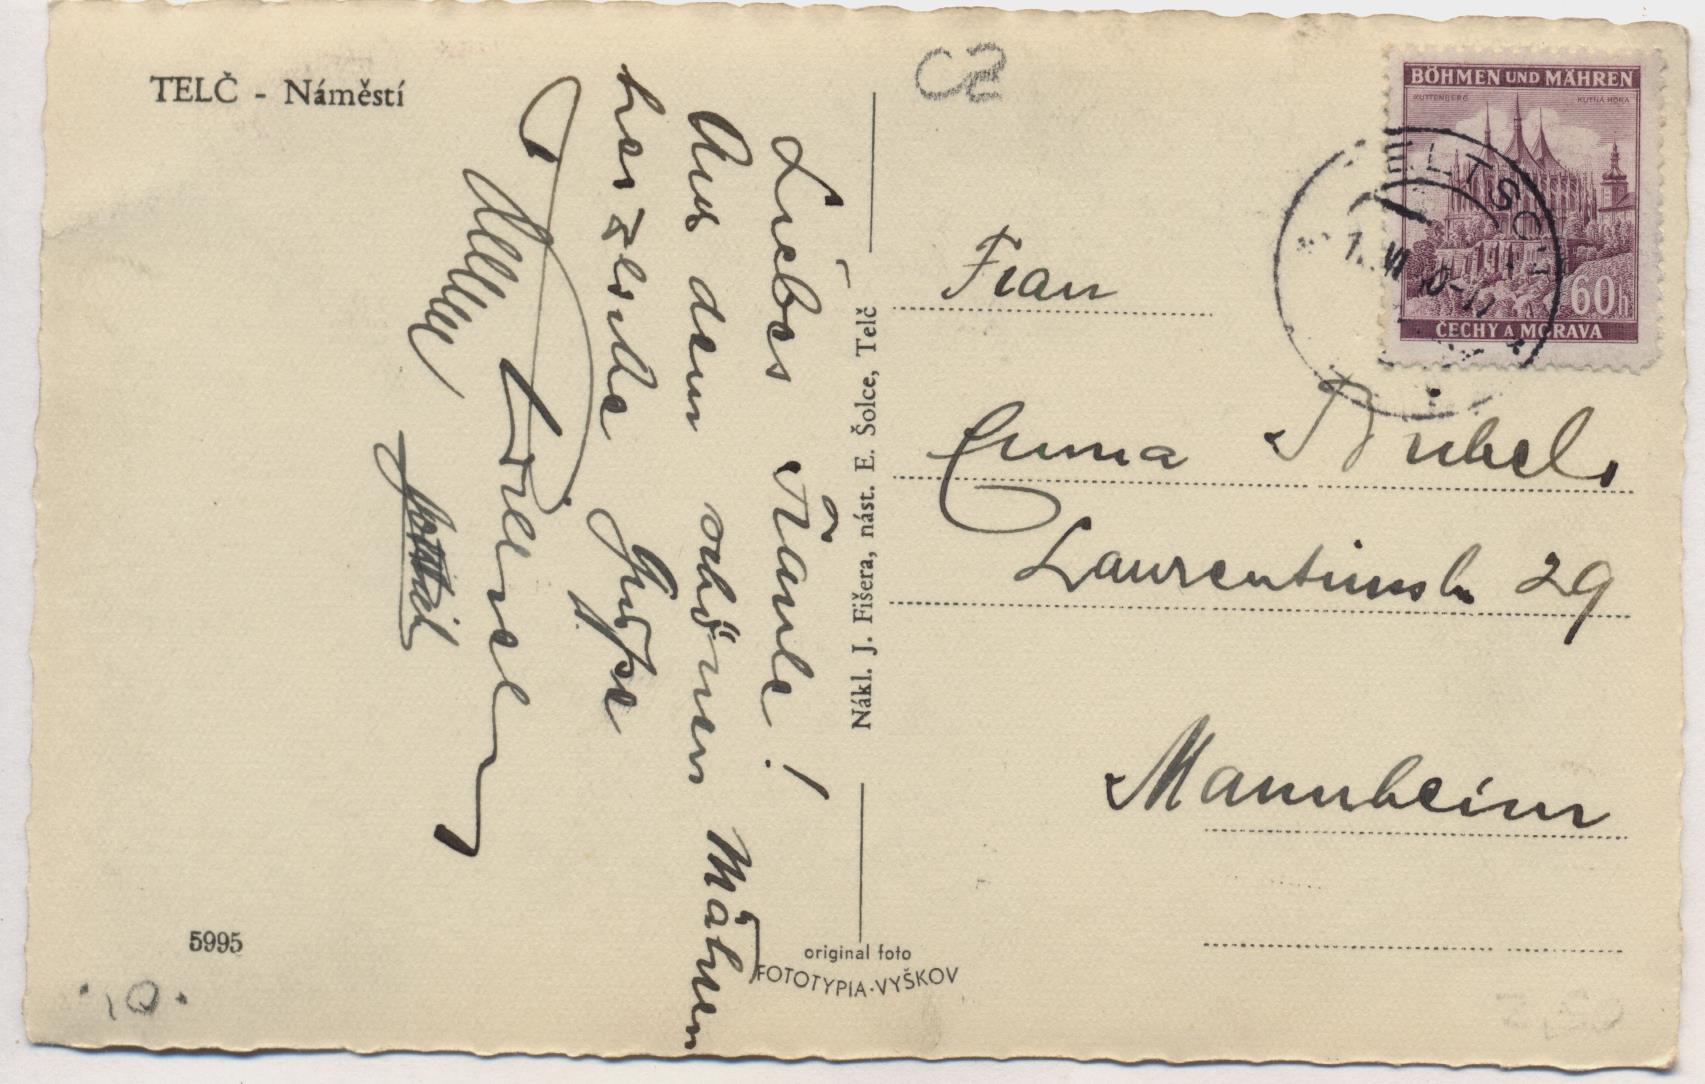 TELČ - Náměstí
Liebes Tränle!
Aus dem schönen Mähren
herzliche Grüße
5995
Nákl. J. Fišera, nást. E. Šolce, Telč
original foto
FOTOTYPIA-VYŠKOV
CZ
BÖHMEN UND MÄHREN
KUTTENBERG KUTNÁ HORA
60h
ČECHY A MORAVA
TELTSCH
Frau
Emma
Laurentiusstr 29
Mannheim
.10.